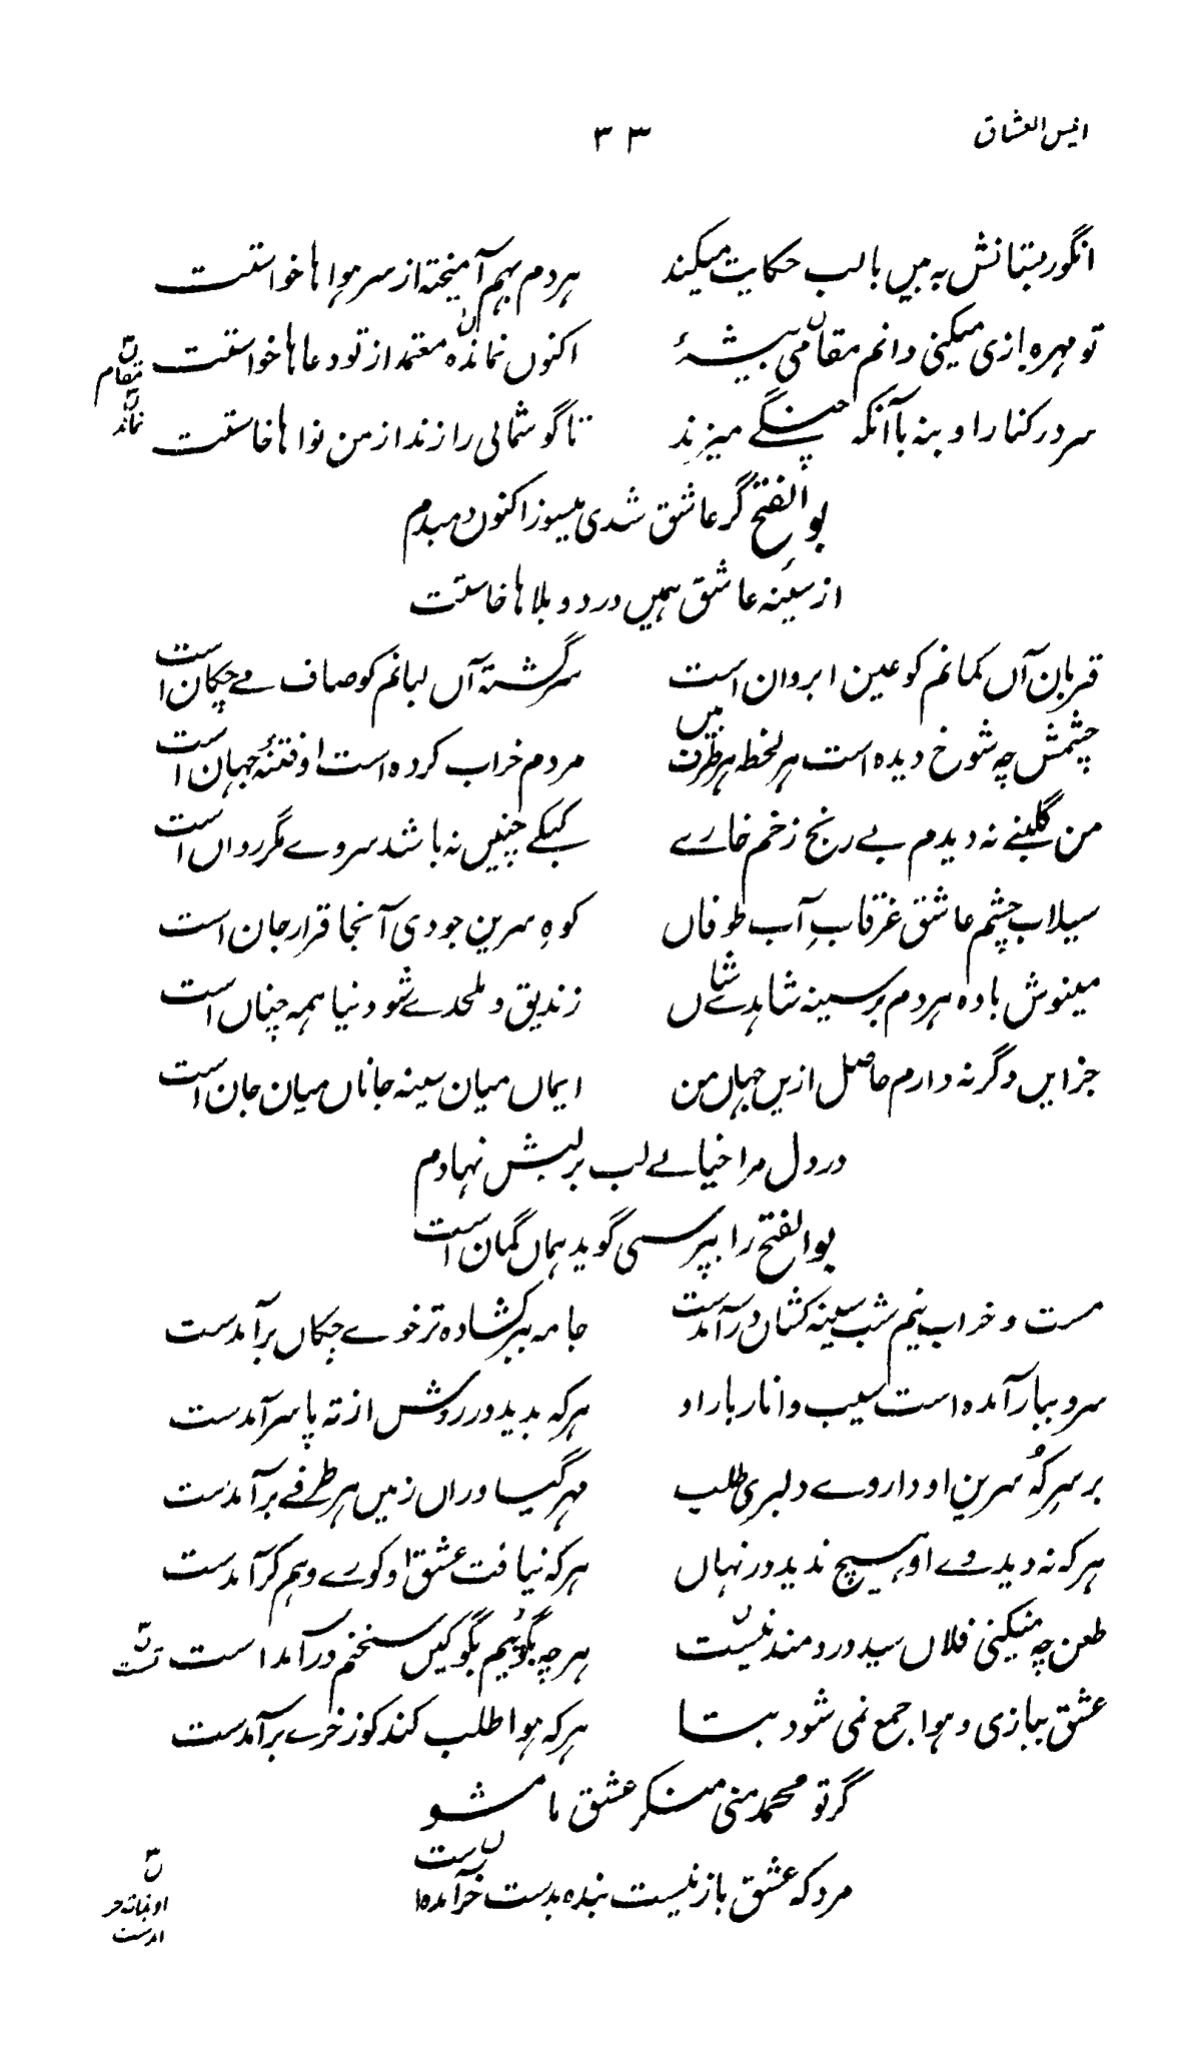 انیس العشاق
۳۳
انگور بستانش به بیں با لب حکایت میکند ہردم بہم آمیخته از سر ہواہا خواستست
تو مہرہ بازی میکنی دانم مقامی پیشۂ اکنوں نمانده معتمد از تو دعاہا خواستست
ن مقام
ن نماند
سر در کنار او بنه باآنکه چنگے میزند تا گوشمالی را زند از من نواہا خاستست
بوالفتح گر عاشق شدی میسوز اکنوں دمبدم
از سینه عاشق ہمیں درد و بلاہا خاستست
قربان آں کمانم کو عین ابروان است سرگشتۂ آں لبانم کو صاف مے چکان است
چشمش چه شوخ دیده است ہر لحظه ہر طرف بیں مردم خراب کرده است او فتنۂ جہان است
من گلبنے نه دیدم بے رنج زخم خارے کبکے چنیں نه باشد سروے مگر رواں است
سیلاب چشم عاشق غرقابِ آب طوفاں کوہِ سرین جودی آنجا قرار جان است
مینوش باده ہردم بر سینه شاہدے شاں زندیق و ملحدے شو دنیا ہمه چناں است
جز ایں دگر نه دارم حاصل ازیں جہاں من ایماں میان سینه جاناں میان جان است
در دل مرا خیالے لب بر لبش نہادم
بوالفتح را بپرسی گوید ہماں گمان است
مست و خراب نیم شب سینه کشاں در آمدست جامه ببر کشاده تر خوے چکاں برآمدست
سرو ببار آمده است سیب و انار بار او ہرکه بدید در روش از ته پا سر آمدست
بر سر کُه سرین او داروے دلبری طلب مہر گیا وراں زمیں ہر طرفے برآمدست
ہرکه نه دید روے او ہیچ ندید در نہاں ہرکه نیافت عشق او کورے و ہم کر آمدست
طعن چه میکنی فلاں سید دردمند نیست ہرچه بگوئیم بگو کیں سخنم درآمد است
ن تست
عشق ببازی و ہوا جمع نمی شود بتا ہرکه ہوا طلب کند کو ز خرے برآمدست
گر تو محمد منی منکر عشق ما مشو
مرد که عشق باز نیست نبده بدست خر آمده است
ن